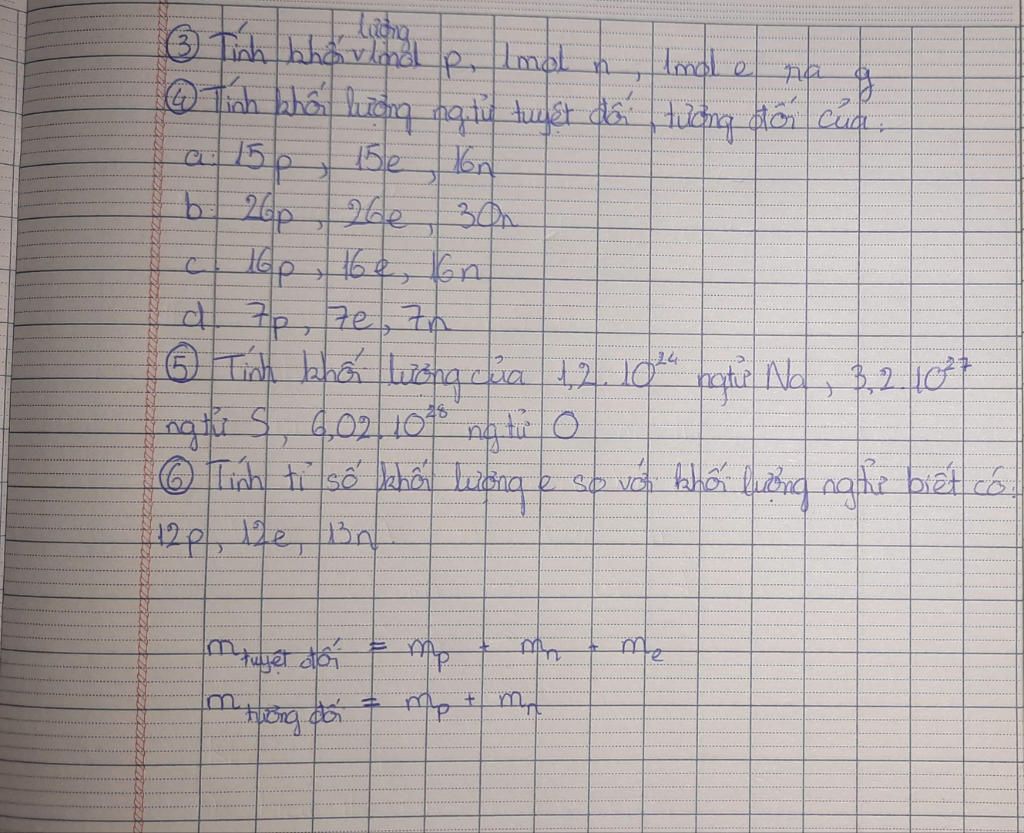 ③ Tính khối lượng 1mol p, 1mol n, 1mol e ra g
④ Tính khối lượng ngtử tuyệt đối, tương đối của:
a. 15p, 15e, 16n
b. 26p, 26e, 30n
c. 16p, 16e, 16n
d. 7p, 7e, 7n
⑤ Tính khối lượng của 1,2.10²⁴ ngtử Na, 3,2.10²⁷
ngtử S, 6,02.10²⁸ ngtử O
⑥ Tính tỉ số khối lượng e so với khối lượng ngtử biết có:
12p, 12e, 13n.
m tuyệt đối = mp + mn + me
m tương đối = mp + mn